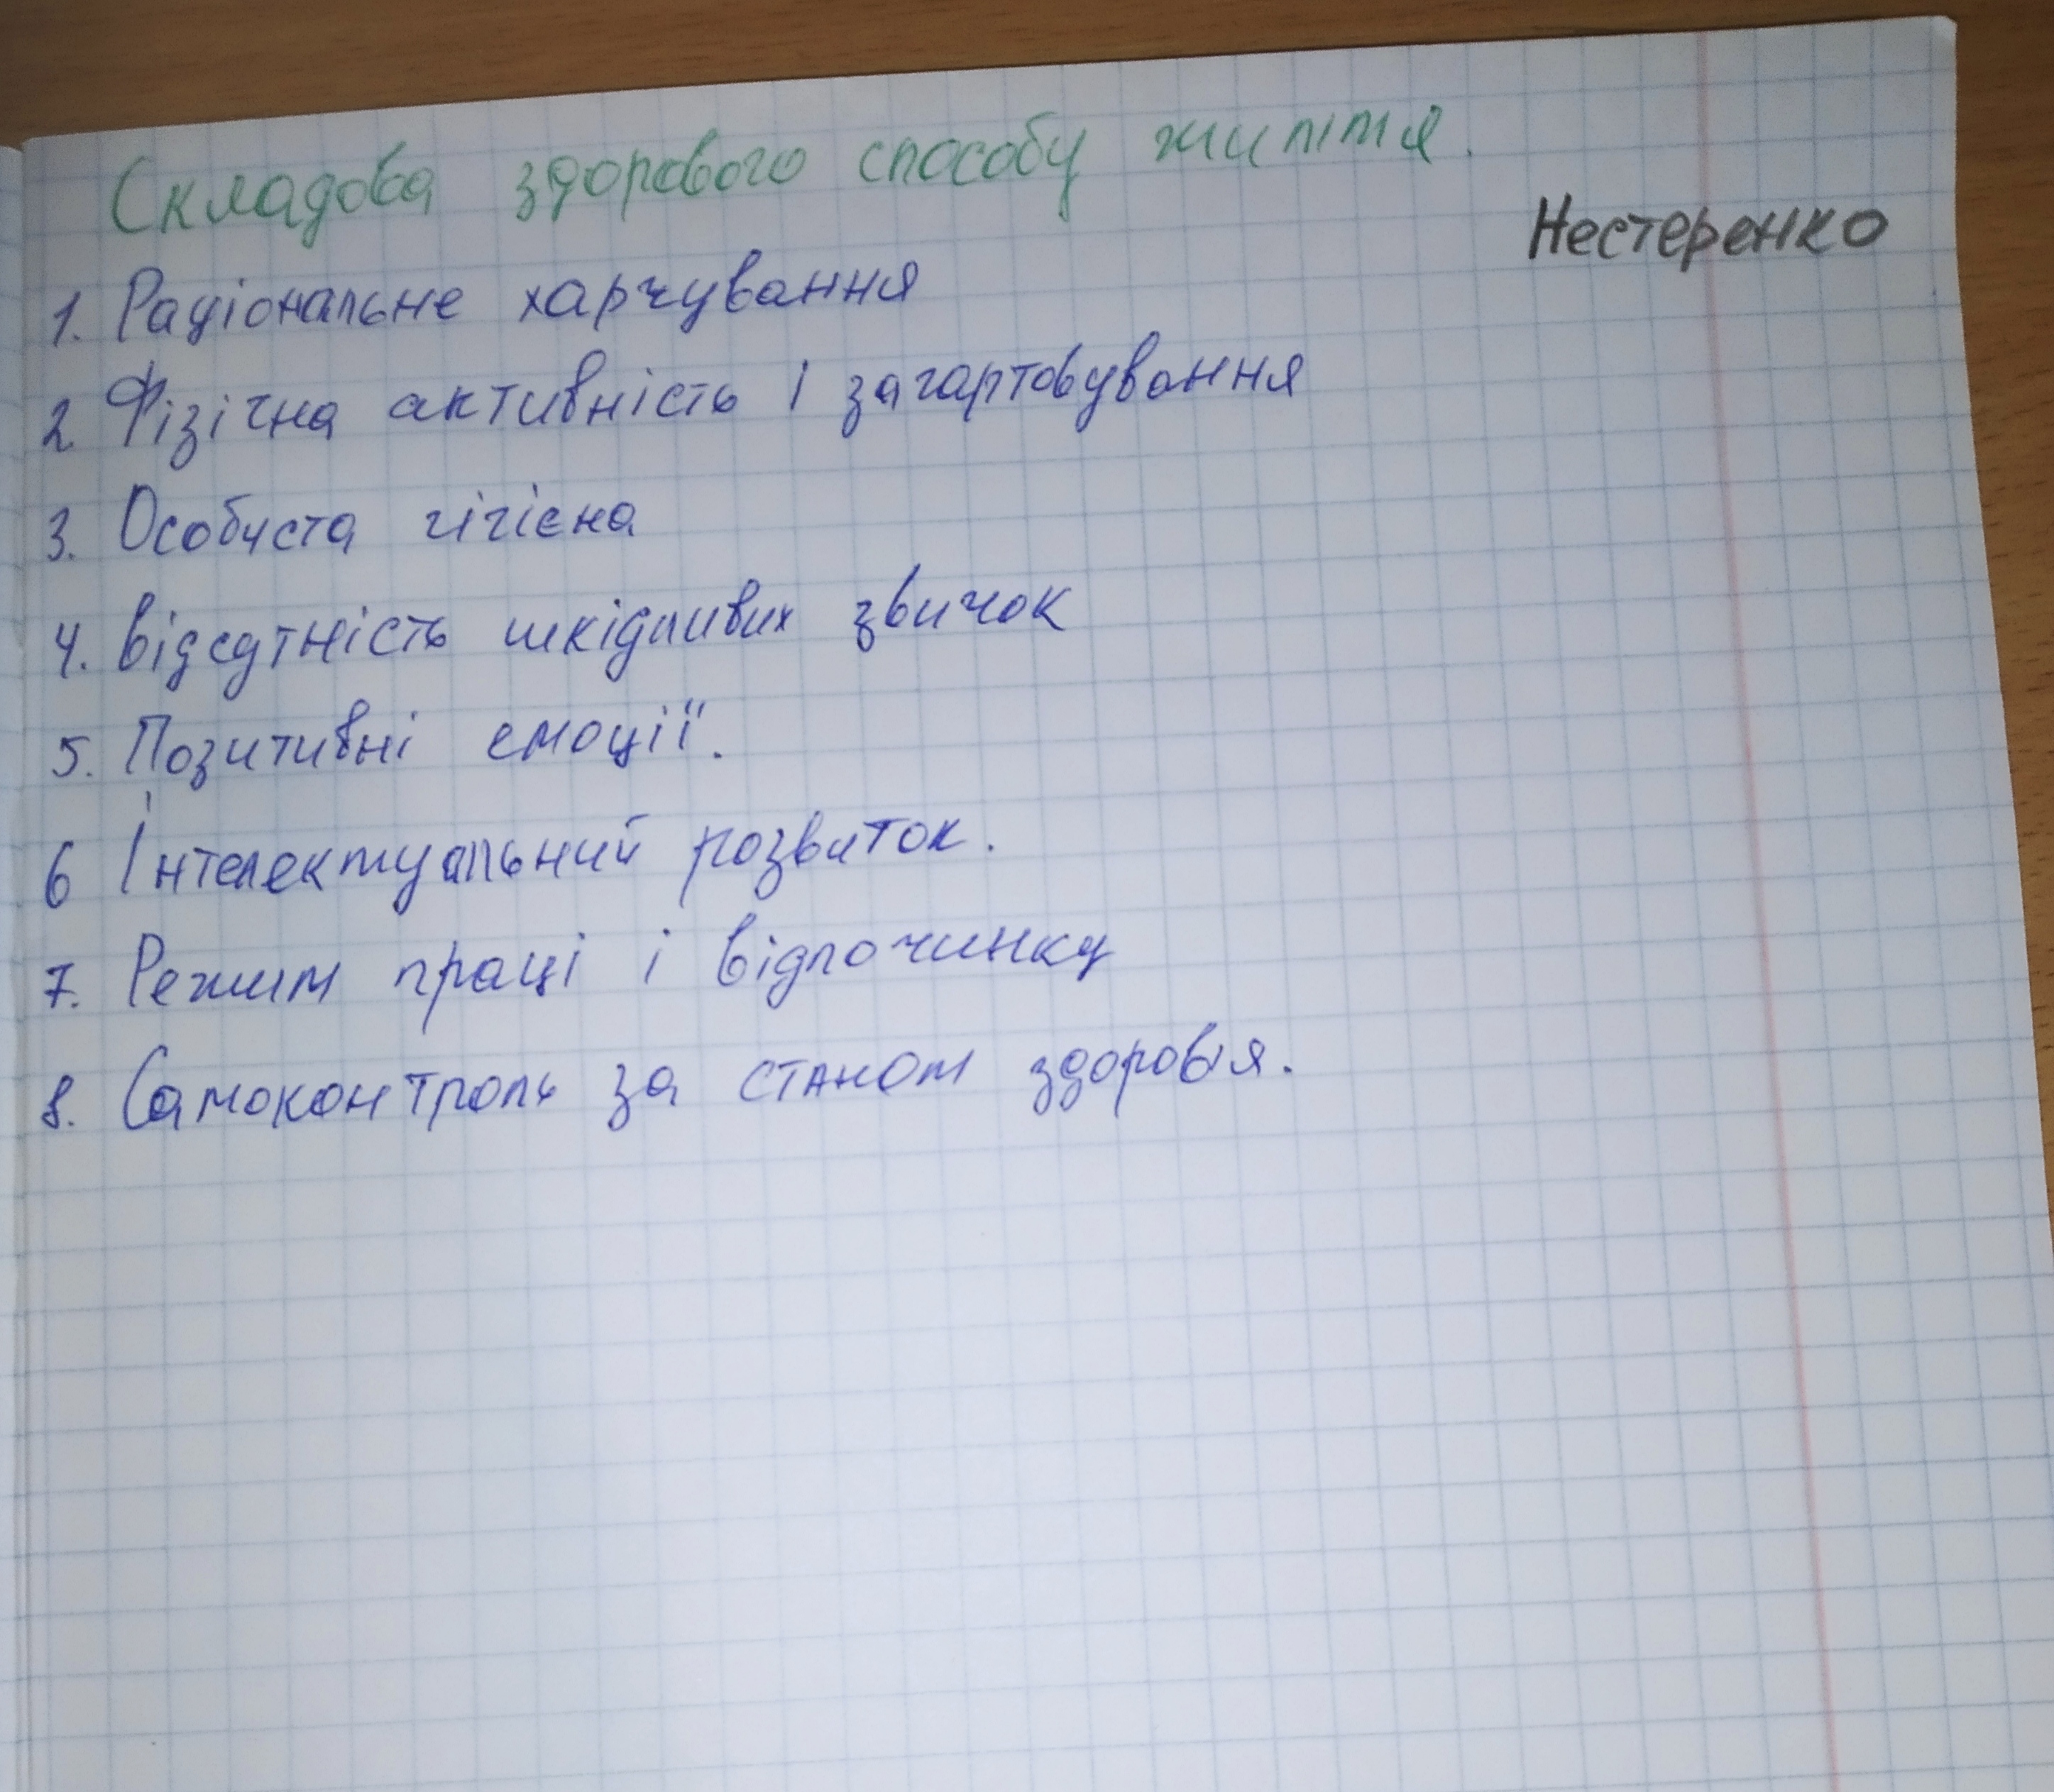 Складова здорового способу життя.
Нестеренко
1. Раціональне харчування
2. Фізична активність і загартовування
3. Особиста гігієна
4. Відсутність шкідливих звичок
5. Позитивні емоції.
6 Інтелектуальний розвиток.
7. Режим праці і відпочинку
8. Самоконтроль за станом здоров'я.